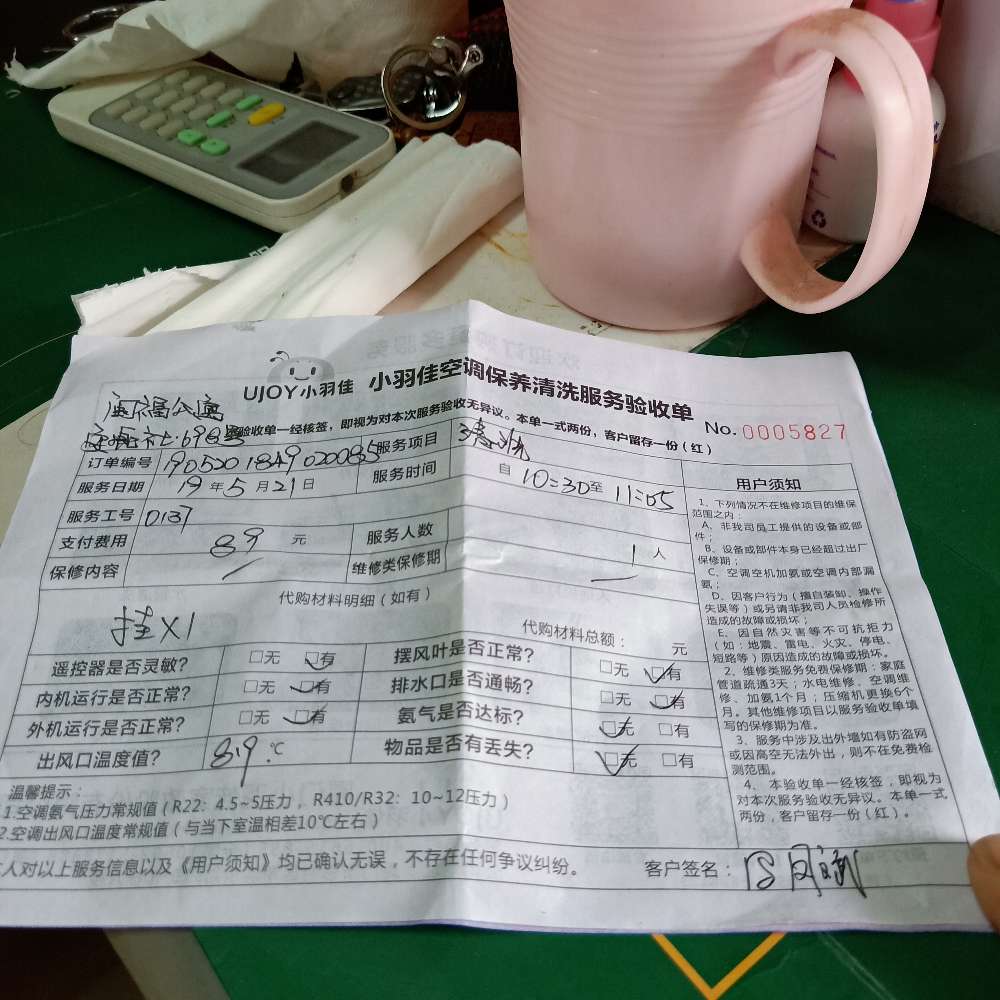 UJOY小羽佳 小羽佳空调保养清洗服务验收单
No. 0005827
闽福公寓
验收单一经核签，即视为对本次服务验收无异议。本单一式两份，客户留存一份（红）
订单编号 1905201849020085 服务项目 清洗
服务日期 19 年 5 月 21 日 服务时间 自 10:30 至 11:05
服务工号 0137
支付费用 89 元 服务人数 1 人
保修内容 维修类保修期
代购材料明细（如有）
挂X1
代购材料总额： 元
遥控器是否灵敏? □无 □有 摆风叶是否正常? □无 □有
内机运行是否正常? □无 □有 排水口是否通畅? □无 □有
外机运行是否正常? □无 □有 氨气是否达标? □无 □有
出风口温度值? 8.9 ℃ 物品是否有丢失? □无 □有
温馨提示：
1.空调氨气压力常规值（R22：4.5~5压力，R410/R32：10~12压力）
2.空调出风口温度常规值（与当下室温相差10℃左右）
人对以上服务信息以及《用户须知》均已确认无误，不存在任何争议纠纷。
客户签名：
用户须知
1、下列情况不在维修项目的维保
范围之内：
A、非我司员工提供的设备或部
件；
B、设备或部件本身已经超过出厂
保修期；
C、空调空机加氨或空调内部漏
氨；
D、因客户行为（擅自装卸、操作
失误等）或另请非我司人员检修所
造成的故障或损坏；
E、因自然灾害等不可抗拒力
（如：地震、雷电、火灾、停电、
短路等）原因造成的故障或损坏。
2、维修类服务免费保修期：家庭
管道疏通3天；水电维修、空调维
修、加氨1个月；压缩机更换6个
月。其他维修项目以服务验收单填
写的保修期为准。
3、服务中涉及出外墙如有防盗网
或因高空无法外出，则不在免费检
测范围。
4、本验收单一经核签，即视为
对本次服务验收无异议。本单一式
两份，客户留存一份（红）。